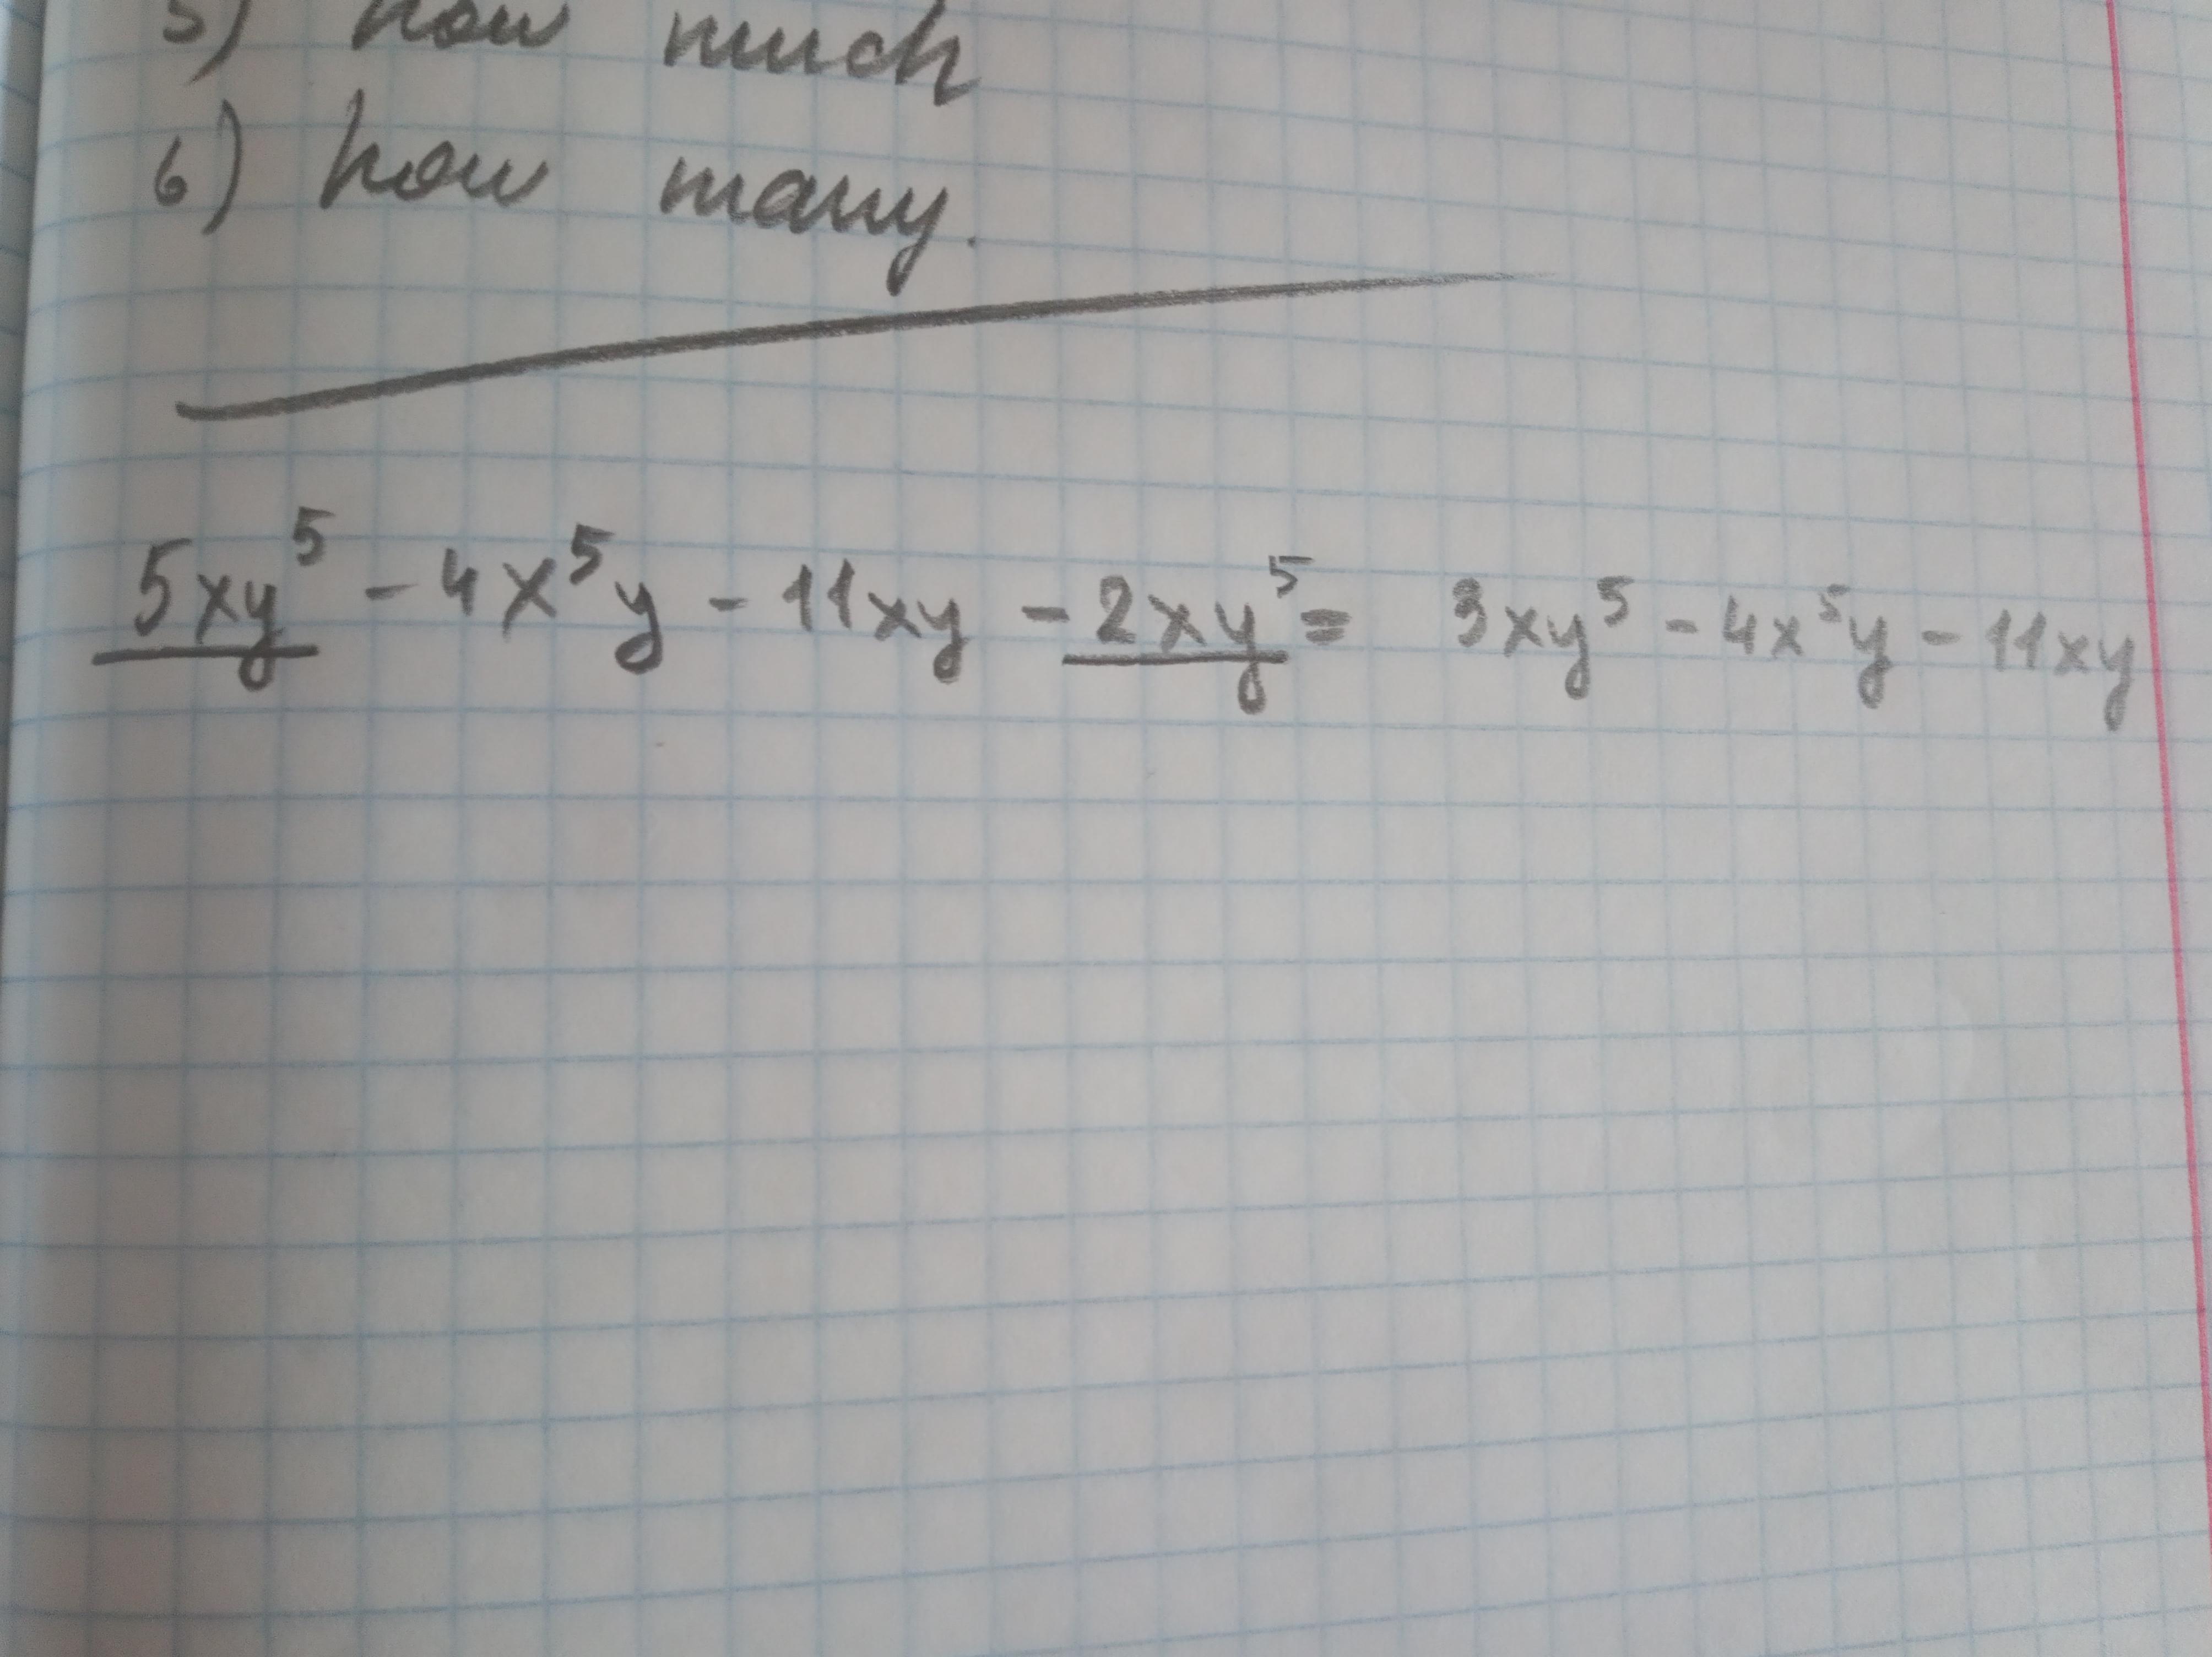 5) how much
6) how many.
5xy⁵ - 4x⁵y - 11xy - 2xy⁵ = 3xy⁵ - 4x⁵y - 11xy